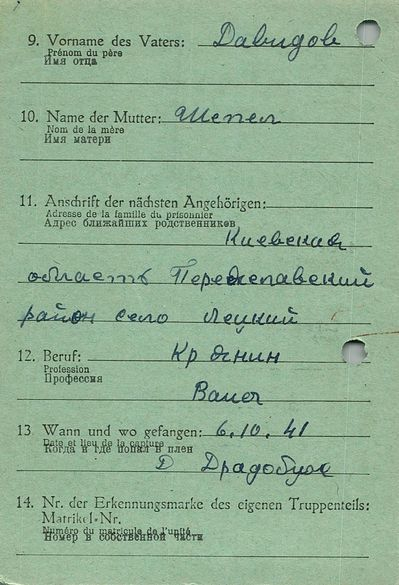 9. Vorname des Vaters: Давидов
Prénom du père
Имя отца
10. Name der Mutter: Шепел
Nom de la mère
Имя матери
11. Anschrift der nächsten Angehörigen:
Adresse de la famille du prisonnier
Адрес ближайших родственников
Киевская
область
район село Лецкий
12. Beruf:
Profession
Профессия
13 Wann und wo gefangen: 6.10.41
Date et lieu de la capture
Когда и где попал в плен
14. Nr. der Erkennungsmarke des eigenen Truppenteils:
Matrikel-Nr.
Numéro du matricule de l'unité
Номер в собственной части